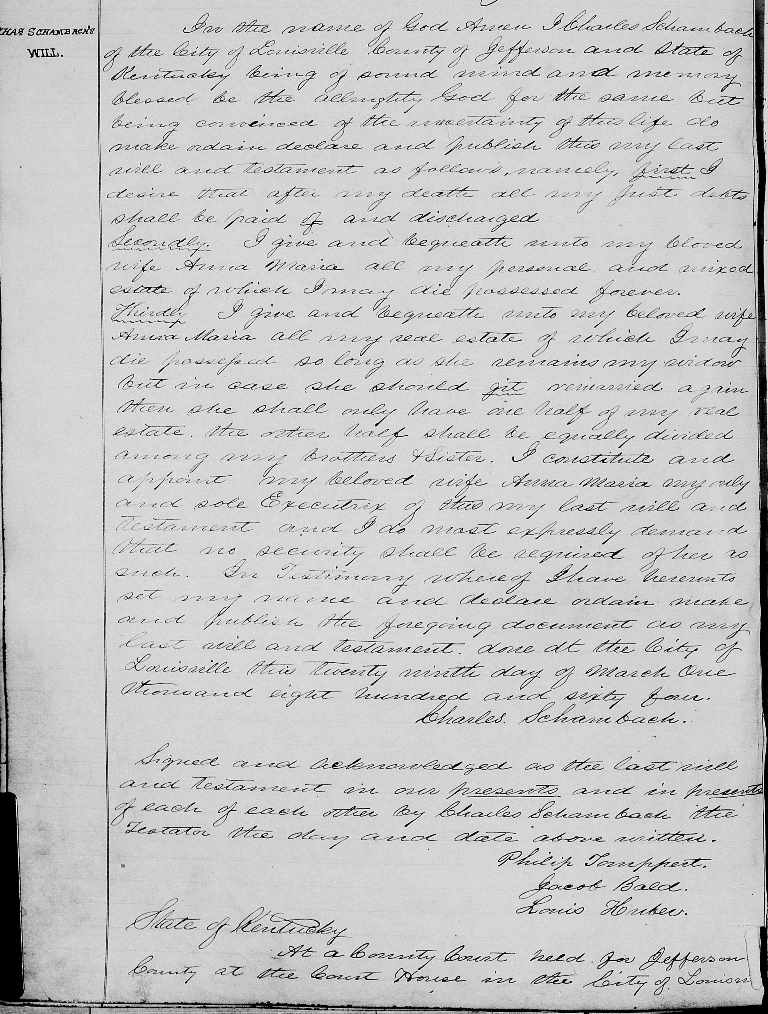 CHAS SCHAMBACH'S
WILL.
In the name of God Amen I Charles Schambach
of the City of Louisville County of Jefferson and State of
Kentucky being of sound mind and memory
blessed be the allmighty God for the same but
being convinced of the uncertainty of this life do
make ordain declare and publish this my last
will and testament as follows, namely, first I
desire that after my death all my just debts
shall be paid of and discharged
Secondly. I give and bequeath unto my bloved
wife Anna Maria all my personal and mixed
estate of which I may die possessed forever.
Thirdly I give and bequeath unto my beloved wife
Anna Maria all my real estate of which I may
die possessed so long as she remains my widow
but in case she should git remarried again
then she shall only have one half of my real
estate. the other half shall be equally divided
among my brothers & Sister. I constitute and
appoint my beloved wife Anna Maria my only
and sole Executrix of this my last will and
testament and I do most expressly demand
that no security shall be required of her as
such. In Testimony whereof I have hereunto
set my name and declare ordain make
and publish the foregoing document as my
last will and testament. done at the City of
Louisville this twenty ninth day of March One
thousand eight hundred and sixty four.
Charles. Schambach.
Signed and acknowledged as the last will
and testament in our presents and in presents
of each of each other by Charles Schambach the
Testator the day and date above written.
Philip Tomppert.
Jacob Bald.
Louis Huber.
State of Kentucky
At a County Court held for Jefferson
County at the Court House in the City of Louisv